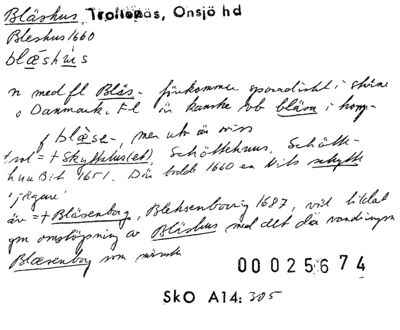 Bläshus, Trollenäs, Onsjö hd
Bleshus 1660
blæshus
n med fl Bläs- förekommer sporadiskt i skåne
o Danmark. Fl är kanske vb blåsa i
f blæse, men utv är viss
† sol = † Skytthus(et), Schöttehuus, Schötte-
huus 1651. Där bodde 1660 en Nils skytte
'jägare'
är = † Bläsenborg, Bleksenborrig 1687, vid
gm omstöpning av Bläshus med det där vanliga
Blæsenborg som
00025674
SkO A14: 305